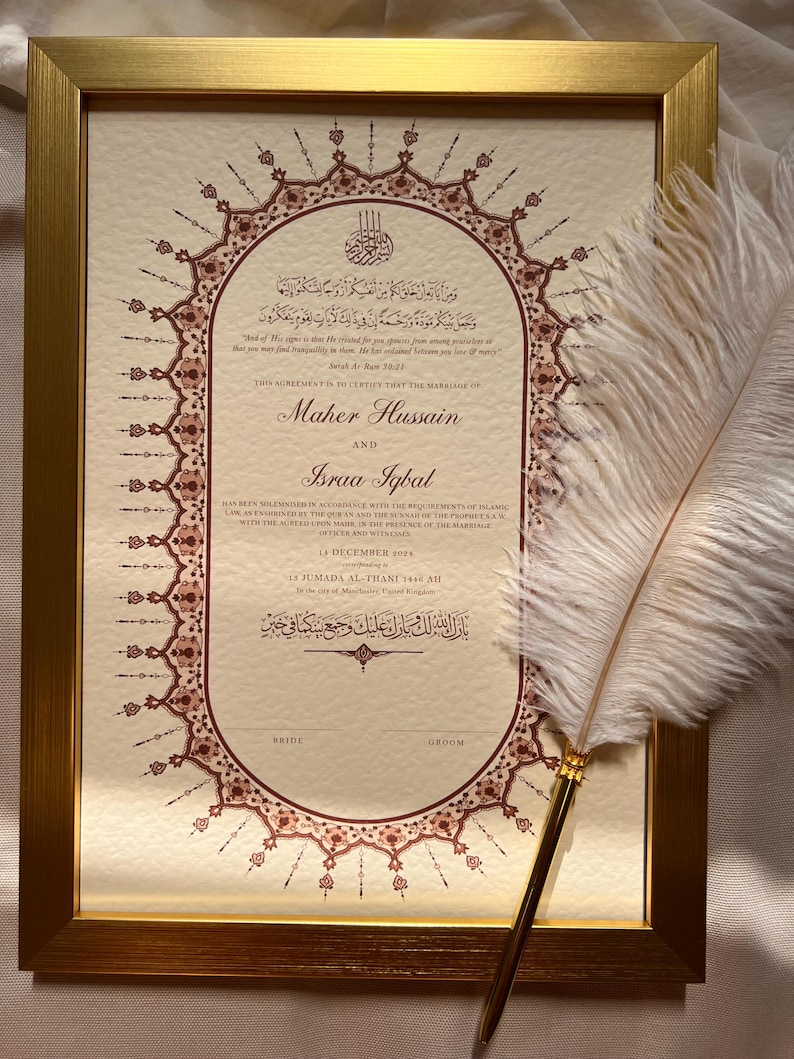 بسم الله الرحمن الرحيم
وَمِنْ آيَاتِهِ أَنْ خَلَقَ لَكُم مِّنْ أَنفُسِكُمْ أَزْوَاجًا لِّتَسْكُنُوا إِلَيْهَا
وَجَعَلَ بَيْنَكُم مَّوَدَّةً وَرَحْمَةً إِنَّ فِي ذَٰلِكَ لَآيَاتٍ لِّقَوْمٍ يَتَفَكَّرُونَ
"And of His signs is that He created for you spouses from among yourselves so
that you may find tranquillity in them. He has ordained between you love & mercy"
Surah Ar-Rum 30:21
THIS AGREEMENT IS TO CERTIFY THAT THE MARRIAGE OF
Maher Hussain
AND
Israa Iqbal
HAS BEEN SOLEMNISED IN ACCORDANCE WITH THE REQUIREMENTS OF ISLAMIC
LAW, AS ENSHRINED BY THE QUR'AN AND THE SUNNAH OF THE PROPHET S.A.W,
WITH THE AGREED UPON MAHR, IN THE PRESENCE OF THE MARRIAGE
OFFICER AND WITNESSES
14 DECEMBER 2024
corresponding to
13 JUMADA AL-THANI 1446 AH
In the city of Manchester, United Kingdom
بَارَكَ اللهُ لَكَ وَبَارَكَ عَلَيْكَ وَجَمَعَ بَيْنَكُمَا فِي خَيْرٍ
BRIDE GROOM